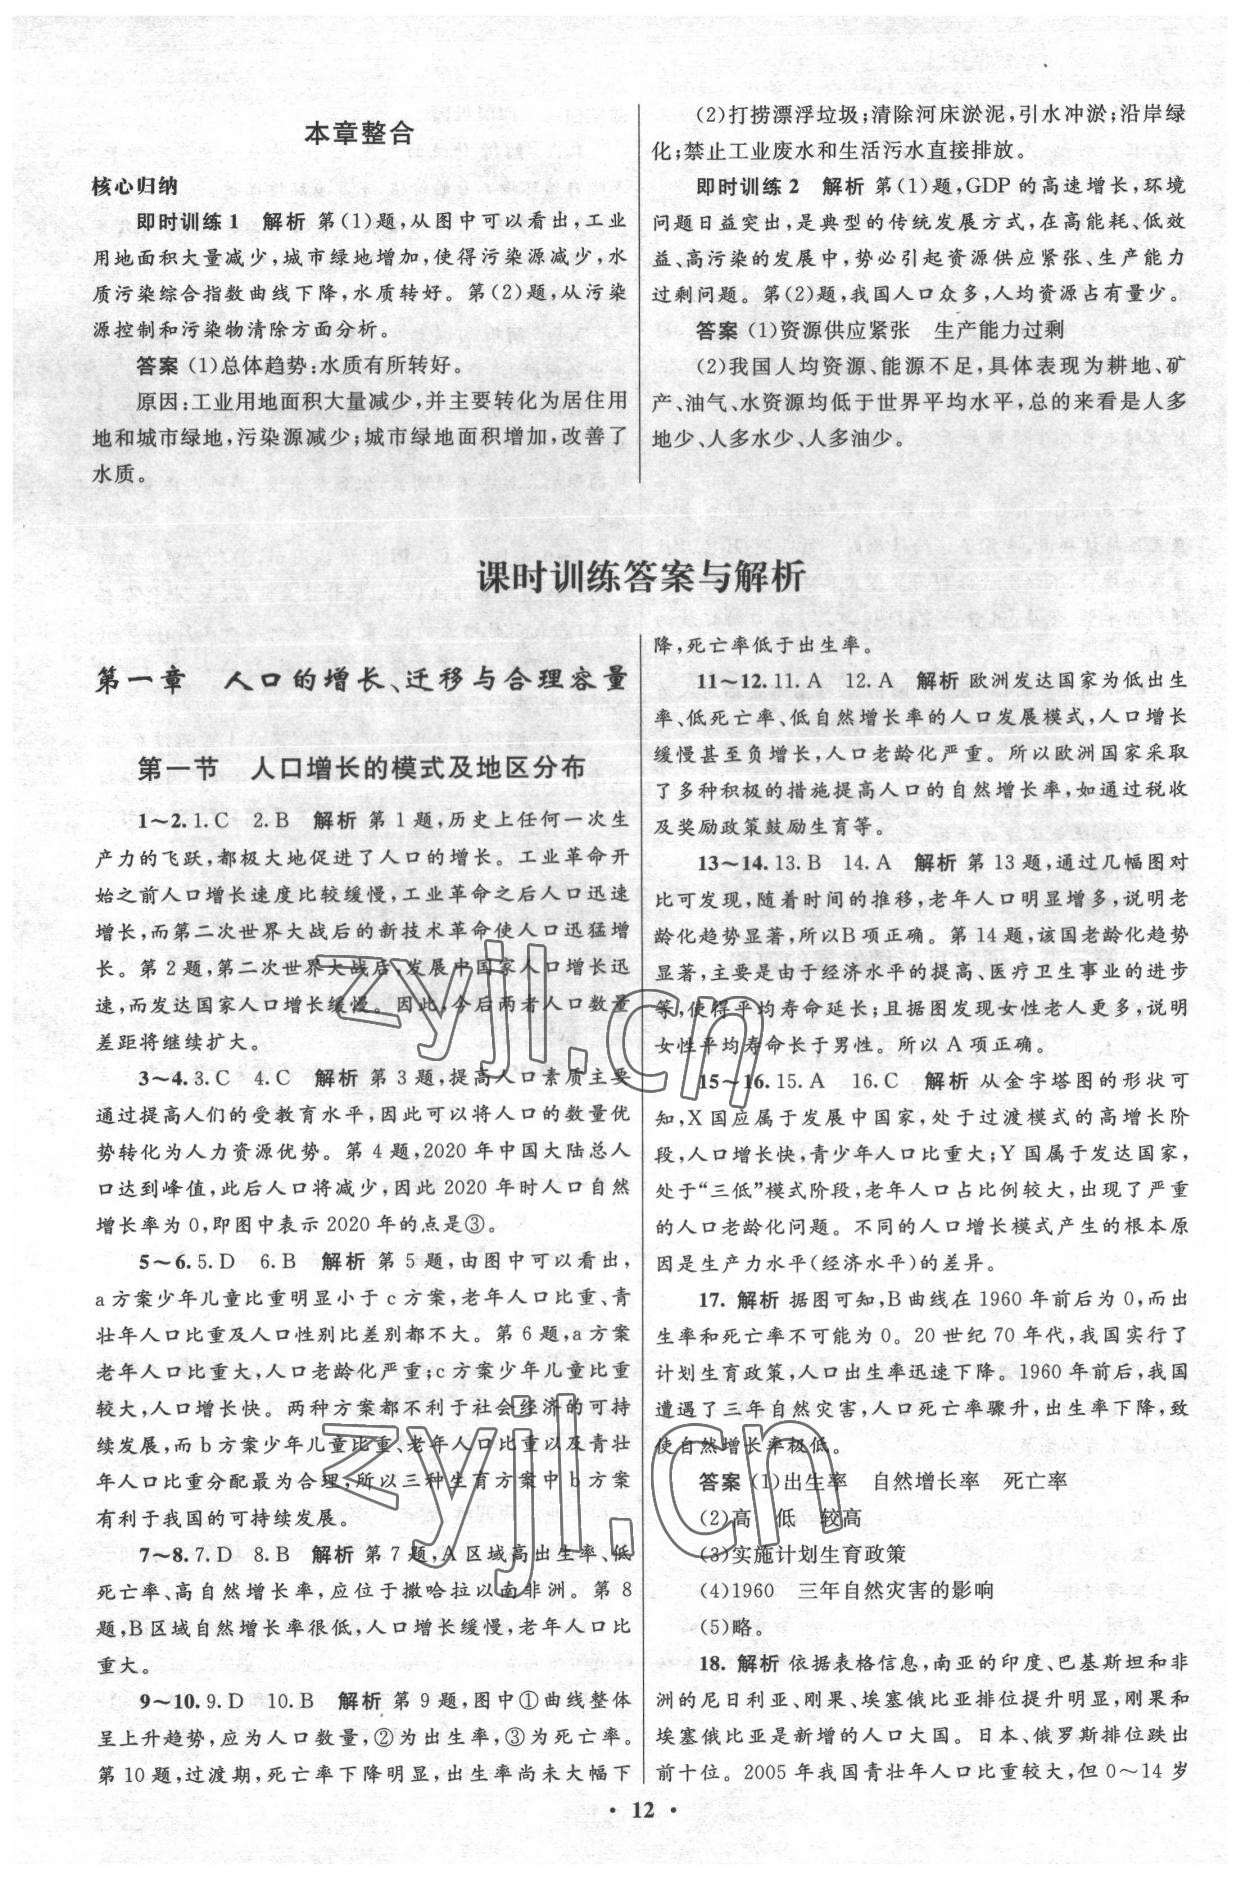 本章整合
核心归纳
即时训练1 解析 第(1)题,从图中可以看出,工业
用地面积大量减少,城市绿地增加,使得污染源减少,水
质污染综合指数曲线下降,水质转好。第(2)题,从污染
源控制和污染物清除方面分析。
答案 (1)总体趋势:水质有所转好。
原因:工业用地面积大量减少,并主要转化为居住用
地和城市绿地,污染源减少;城市绿地面积增加,改善了
水质。
(2)打捞漂浮垃圾;清除河床淤泥,引水冲淤;沿岸绿
化;禁止工业废水和生活污水直接排放。
即时训练2 解析 第(1)题,GDP的高速增长,环境
问题日益突出,是典型的传统发展方式,在高能耗、低效
益、高污染的发展中,势必引起资源供应紧张、生产能力
过剩问题。第(2)题,我国人口众多,人均资源占有量少。
答案 (1)资源供应紧张 生产能力过剩
(2)我国人均资源、能源不足,具体表现为耕地、矿
产、油气、水资源均低于世界平均水平,总的来看是人多
地少、人多水少、人多油少。
课时训练答案与解析
第一章 人口的增长、迁移与合理容量
第一节 人口增长的模式及地区分布
1~2.1.C 2.B 解析 第1题,历史上任何一次生
产力的飞跃,都极大地促进了人口的增长。工业革命开
始之前人口增长速度比较缓慢,工业革命之后人口迅速
增长,而第二次世界大战后的新技术革命使人口迅猛增
长。第2题,第二次世界大战后,发展中国家人口增长迅
速,而发达国家人口增长缓慢。因此,今后两者人口数量
差距将继续扩大。
3~4.3.C 4.C 解析 第3题,提高人口素质主要
通过提高人们的受教育水平,因此可以将人口的数量优
势转化为人力资源优势。第4题,2020年中国大陆总人
口达到峰值,此后人口将减少,因此2020年时人口自然
增长率为0,即图中表示2020年的点是③。
5~6.5.D 6.B 解析 第5题,由图中可以看出,
a方案少年儿童比重明显小于c方案,老年人口比重、青
壮年人口比重及人口性别比差别都不大。第6题,a方案
老年人口比重大,人口老龄化严重;c方案少年儿童比重
较大,人口增长快。两种方案都不利于社会经济的可持
续发展,而b方案少年儿童比重、老年人口比重以及青壮
年人口比重分配最为合理,所以三种生育方案中b方案
有利于我国的可持续发展。
7~8.7.D 8.B 解析 第7题,A区域高出生率、低
死亡率、高自然增长率,应位于撒哈拉以南非洲。第8
题,B区域自然增长率很低,人口增长缓慢,老年人口比
重大。
9~10.9.D 10.B 解析 第9题,图中①曲线整体
呈上升趋势,应为人口数量,②为出生率,③为死亡率。
第10题,过渡期,死亡率下降明显,出生率尚未大幅下
降,死亡率低于出生率。
11~12.11.A 12.A 解析 欧洲发达国家为低出生
率、低死亡率、低自然增长率的人口发展模式,人口增长
缓慢甚至负增长,人口老龄化严重。所以欧洲国家采取
了多种积极的措施提高人口的自然增长率,如通过税收
及奖励政策鼓励生育等。
13~14.13.B 14.A 解析 第13题,通过几幅图对
比可发现,随着时间的推移,老年人口明显增多,说明老
龄化趋势显著,所以B项正确。第14题,该国老龄化趋势
显著,主要是由于经济水平的提高、医疗卫生事业的进步
等,使得平均寿命延长;且据图发现女性老人更多,说明
女性平均寿命长于男性。所以A项正确。
15~16.15.A 16.C 解析 从金字塔图的形状可
知,X国应属于发展中国家,处于过渡模式的高增长阶
段,人口增长快,青少年人口比重大;Y国属于发达国家,
处于“三低”模式阶段,老年人口占比例较大,出现了严重
的人口老龄化问题。不同的人口增长模式产生的根本原
因是生产力水平(经济水平)的差异。
17. 解析 据图可知,B曲线在1960年前后为0,而出
生率和死亡率不可能为0。20世纪70年代,我国实行了
计划生育政策,人口出生率迅速下降。1960年前后,我国
遭遇了三年自然灾害,人口死亡率骤升,出生率下降,致
使自然增长率极低。
答案 (1)出生率 自然增长率 死亡率
(2)高 低 较高
(3)实施计划生育政策
(4)1960 三年自然灾害的影响
(5)略。
18. 解析 依据表格信息,南亚的印度、巴基斯坦和非
洲的尼日利亚、刚果、埃塞俄比亚排位提升明显,刚果和
埃塞俄比亚是新增的人口大国。日本、俄罗斯排位跌出
前十位。2005年我国青壮年人口比重较大,但0~14岁
• 12 •
zyjl.cn
zyjl.cn